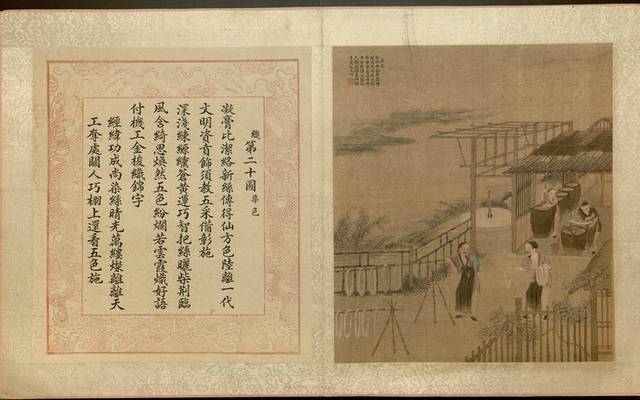 織第二十圖染色
凝膏比潔絡新絲傳得仙方色陸離一代
文明資賁飾須教五采備彰施
深淺練縓纁蒼黃運巧智把絲曬柴荊臨
風含綺思煥然五色紛爛若雲霞熾好語
付機工金梭織錦字
經緯功成尚染絲晴光萬縷燦離離天
工奪處關人巧棚上還看五色施